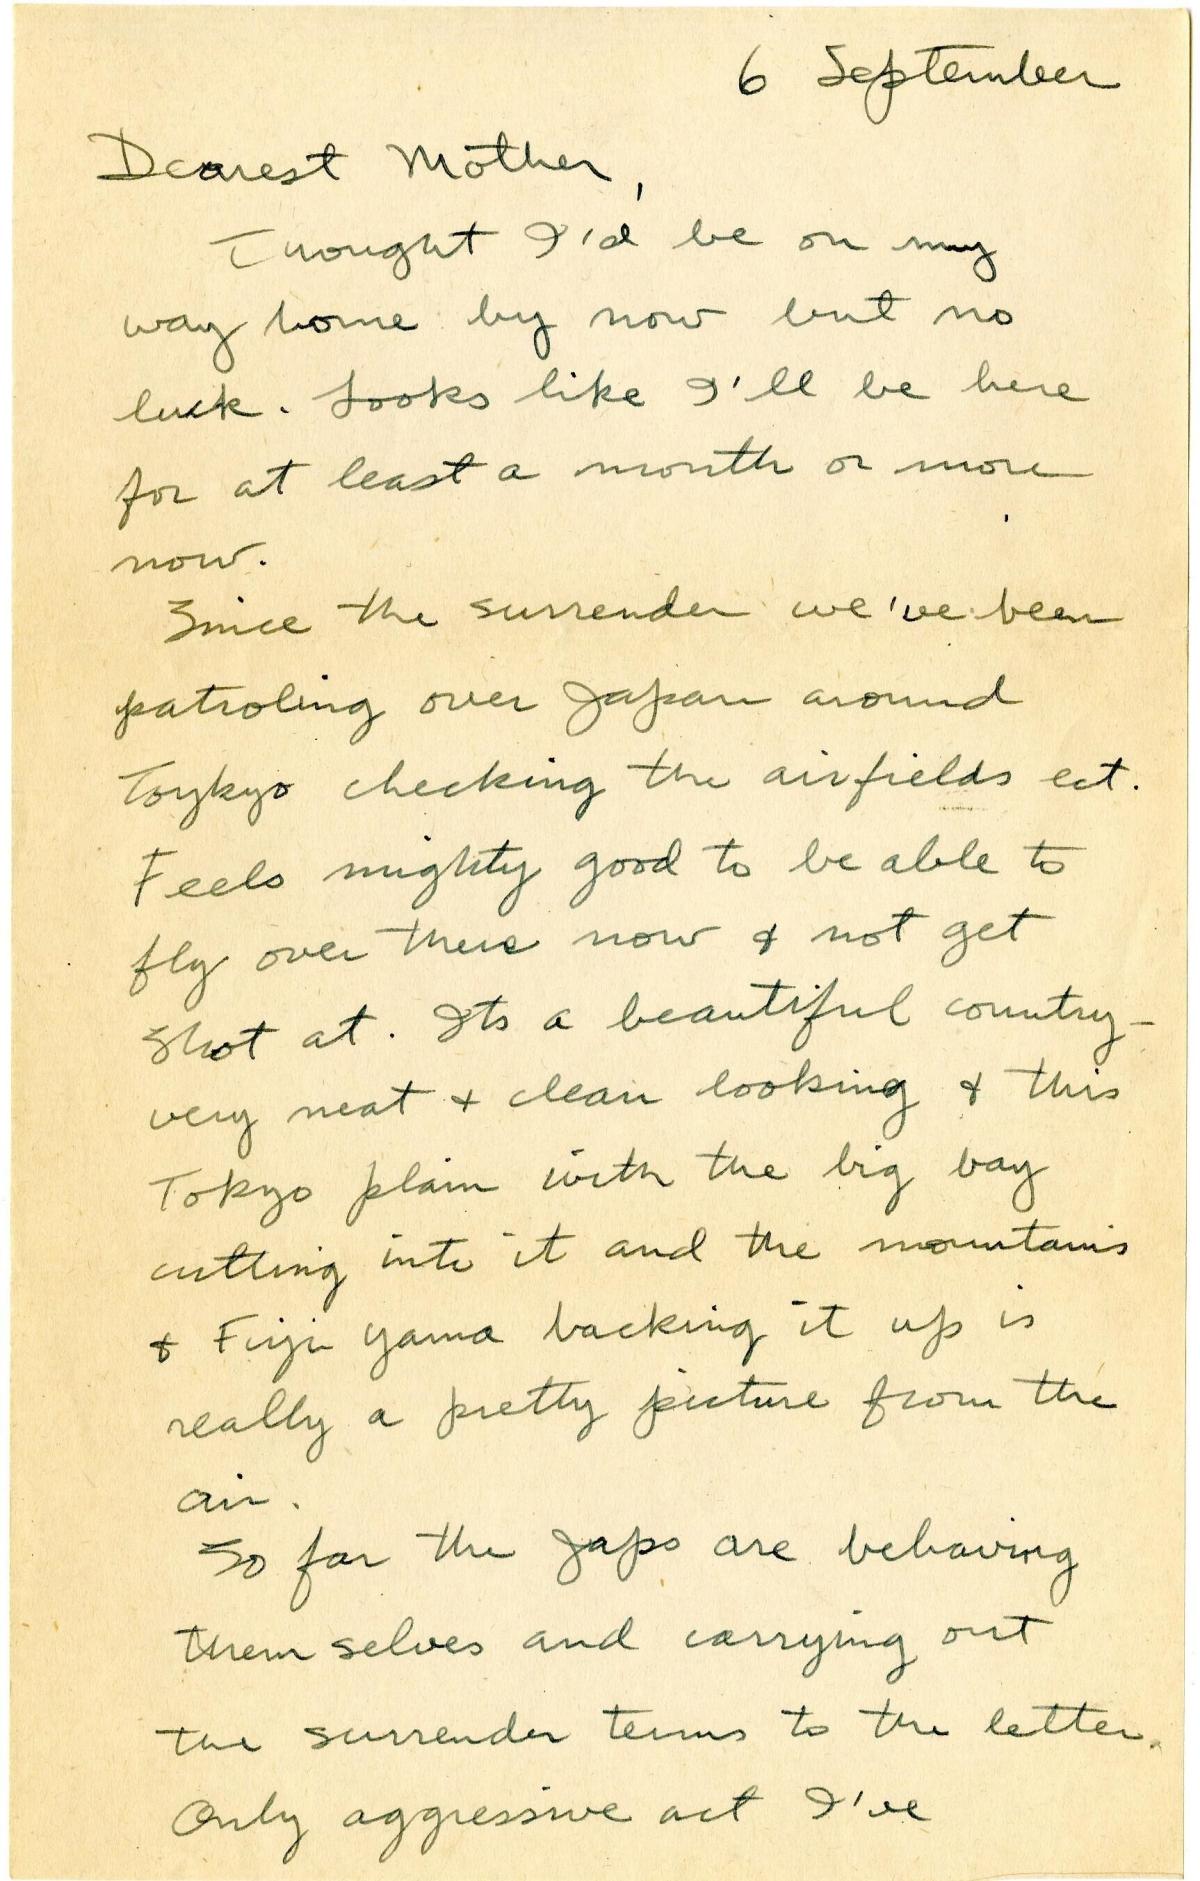 6 September
Dearest Mother,
Thought I'd be on my
way home by now but no
luck. Looks like I'll be here
for at least a month or more
now.
Since the surrender we've been
patroling over Japan around
Toykyo checking the airfields ect.
Feels mighty good to be able to
fly over there now & not get
shot at. Its a beautiful country -
very neat & clean looking & this
Tokyo plain with the big bay
cutting into it and the mountains
& Fiji yama backing it up is
really a pretty picture from the
air.
So far the Japs are behaving
them selves and carrying out
the surrender terms to the letter.
Only aggressive act I've